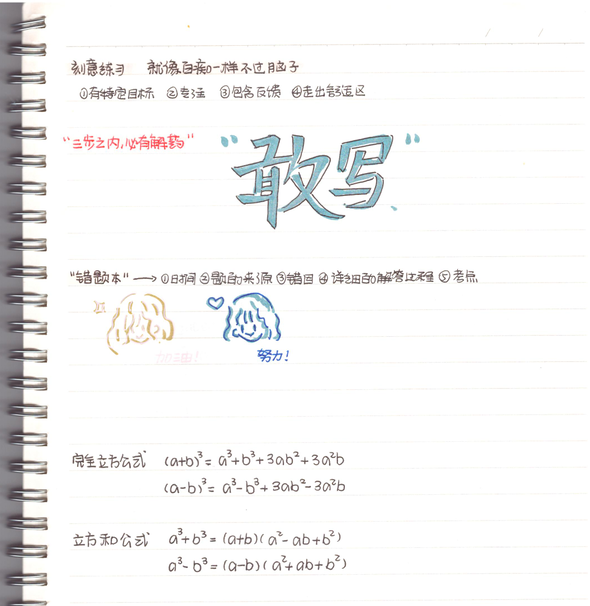 刻意练习 就像白痴一样不过脑子
①有特定目标 ②专注 ③包含反馈 ④走出舒适区
"三步之内,必有解药" "敢写"
"错题本" → ①日期 ②题的来源 ③错因 ④详细的解答过程 ⑤考点
加油!
努力!
完全立方公式 (a+b)³= a³+b³+3ab²+3a²b
(a-b)³= a³-b³+3ab²-3a²b
立方和公式 a³+b³=(a+b)(a²-ab+b²)
a³-b³=(a-b)(a²+ab+b²)